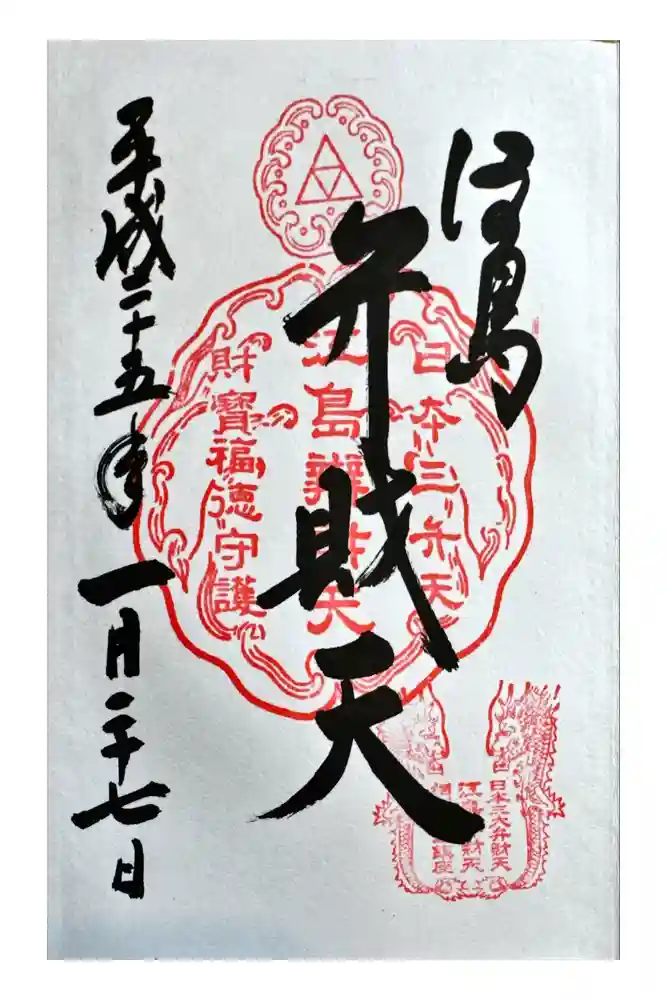 江島
弁財天
平成二十五年
一月二十七日
日本三弁天
江島辨財天
財寶福徳守護
日本三大弁財天